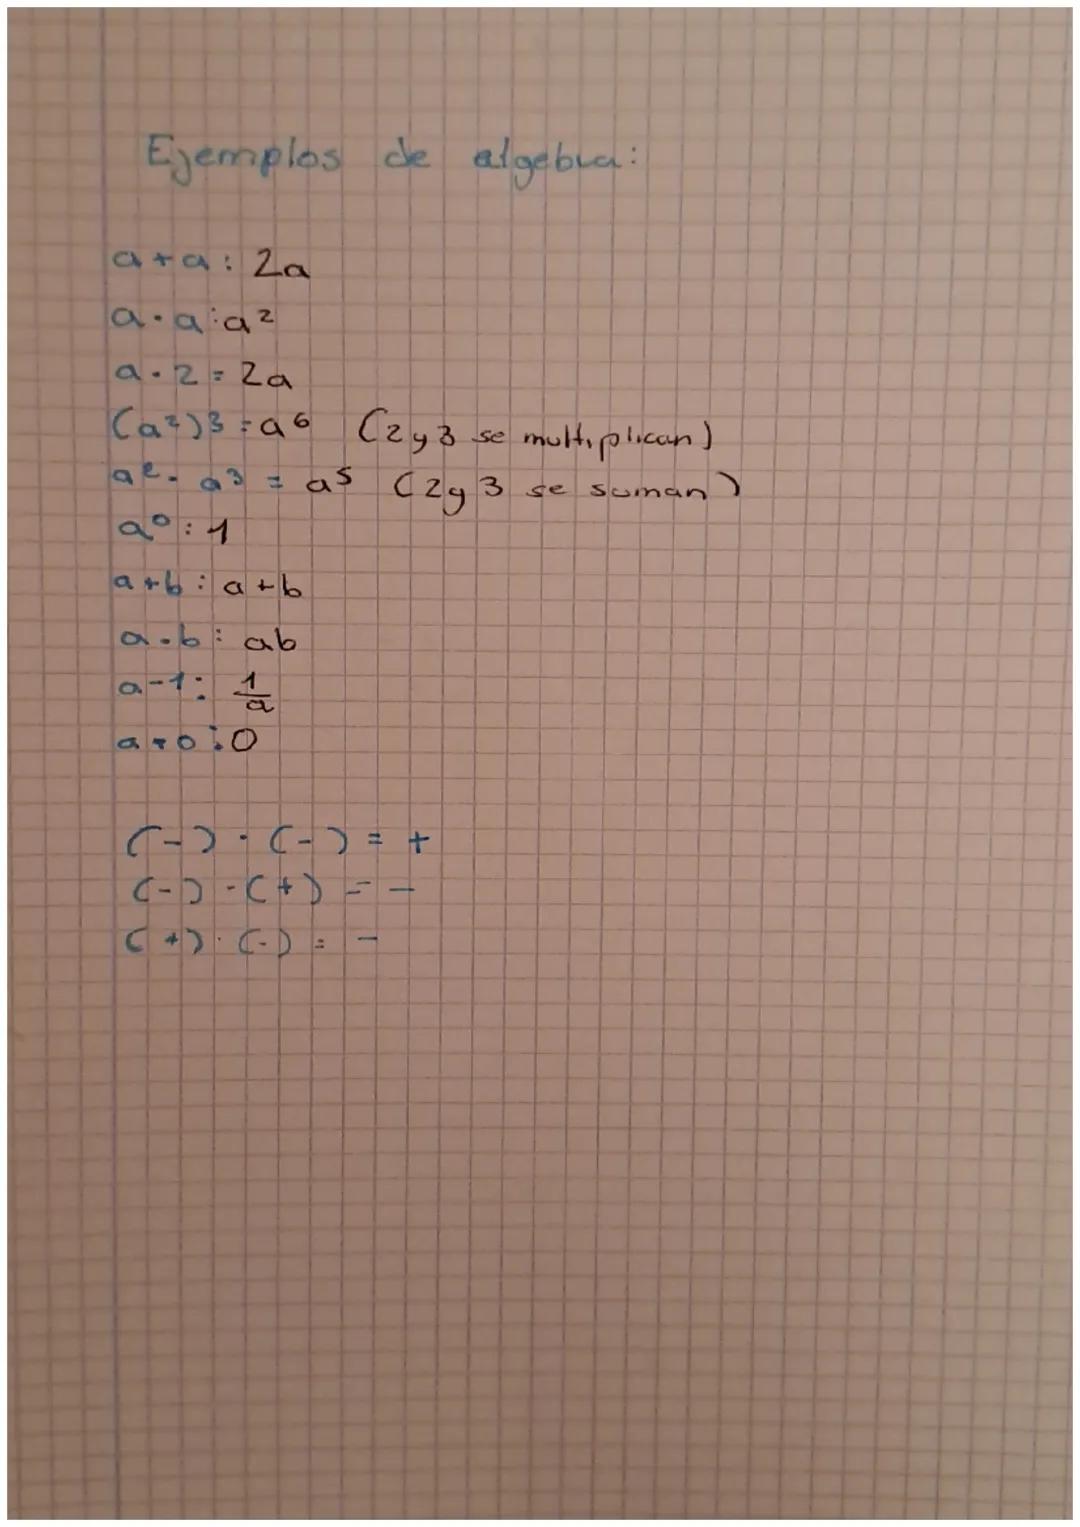 Ejemplos de algebra:
a+a: 2a
a·a:a²
a·2=2a
(a²)3=a⁶ (2y3 se multiplican)
a²·a³ = a⁵ (2y3 se suman)
a⁰:1
a+b: a+b
a·b: ab
a-1: 1/a
a+0:0
(-)·(-) = +
(-)·(+) = -
(+)·(-) = -